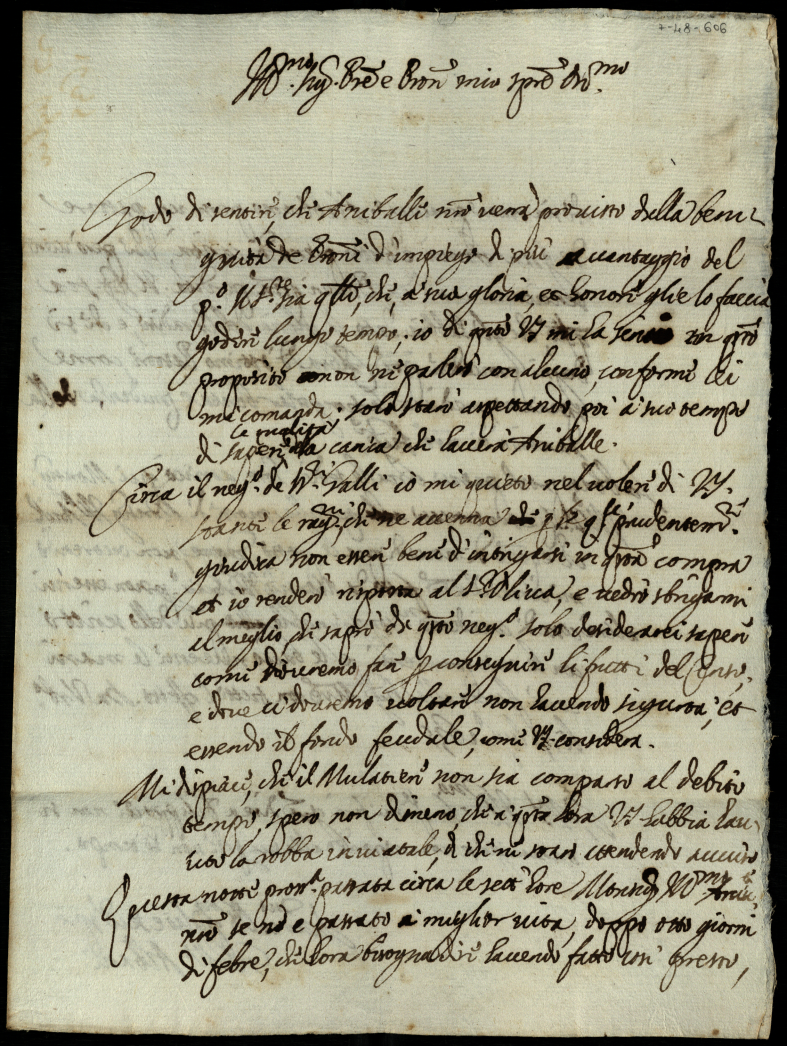 7-48-606
Sig.r
Godo di sentire, che Aniballe nr̃o uerrà prouisto della beni-
gnità de Pr̃oni d'impiego di più auantaggio del
p.o che, à sua gloria, et honore glie lo faccia
godere lungo tempo; io di qsto VS mi la
proposito non ne parlerò con alcuno, conforme lei
mi comanda; solo starò aspettando poi à suo tempo
di sapere la carica che lascierà Aniballe.
la qualità
Circa il neg.o de Galli io mi quieto nel uolere di VS.
stante le ragni, che ne accenna che prudentem.te
giudica non essere bene d'intrigarsi in qsta compra
et io renderò risposta al Oliua, e uedrò sbrigarmi
al meglio, che saprò di qsto neg.o solo desiderarei sapere
come doueremo fare p conseguire li frutti del Censo,
e doue ci doueremo uoltare non hauendo sigurtà, et
essendo il fondo feudale, come VS considera.
Mi dispiace, che il Mulatiere non sia comparso al debito
tempo, spero non dimeno, che à qsta hora VS habbia hau-
uto la robba inuiatale, di che ne starò attendendo auuiso
Questa notte pross.a passata circa le sette hore Monsig.
nr̃o se ne è passato à miglior uita, doppo otto giorni
di febre, che hora bisogna dire hauendo fatto così presto,